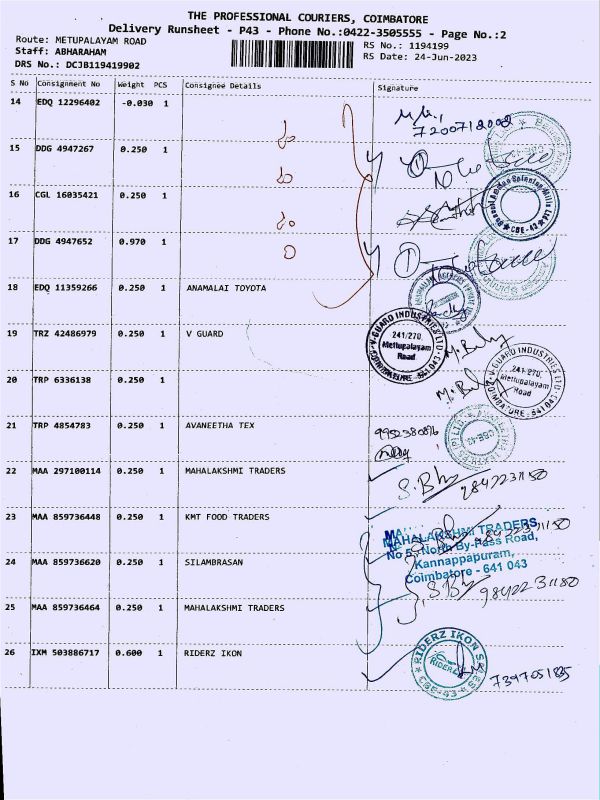 THE PROFESSIONAL COURIERS, COIMBATORE
Delivery Runsheet - P43 - Phone No.:0422-3505555 - Page No.:2
Route: METUPALAYAM ROAD
RS No.: 1194199
Staff: ABHARAHAM
RS Date: 24-Jun-2023
DRS No.: DCJB119419902
S No Consignment No Weight PCS Consignee Details Signature
14 EDQ 12296402 -0.030 1
7200712002
15 DDG 4947267 0.250 1
16 CGL 16035421 0.250 1
CBE-43
17 DDG 4947652 0.970 1
18 EDQ 11359266 0.250 1 ANAMALAI TOYOTA
19 TRZ 42486979 0.250 1 V GUARD
V-GUARD INDUSTRIES LTD
241/270,
Mettupalayam
Road
20 TRP 6336138 0.250 1
V-GUARD INDUSTRIES LTD
241/270,
Mettupalayam
Road
COIMBATORE - 641 043
21 TRP 4854783 0.250 1 AVANEETHA TEX
CBE-43
22 MAA 297100114 0.250 1 MAHALAKSHMI TRADERS
9842231180
23 MAA 859736448 0.250 1 KMT FOOD TRADERS
MAHALAKSHMI TRADERS
No 5, North By-Pass Road,
Kannappapuram,
Coimbatore - 641 043
24 MAA 859736620 0.250 1 SILAMBRASAN
9842231180
25 MAA 859736464 0.250 1 MAHALAKSHMI TRADERS
26 IXM 503886717 0.600 1 RIDERZ IKON
RIDERZ IKON SALES
RIDERZ
CBE-43
7397051885